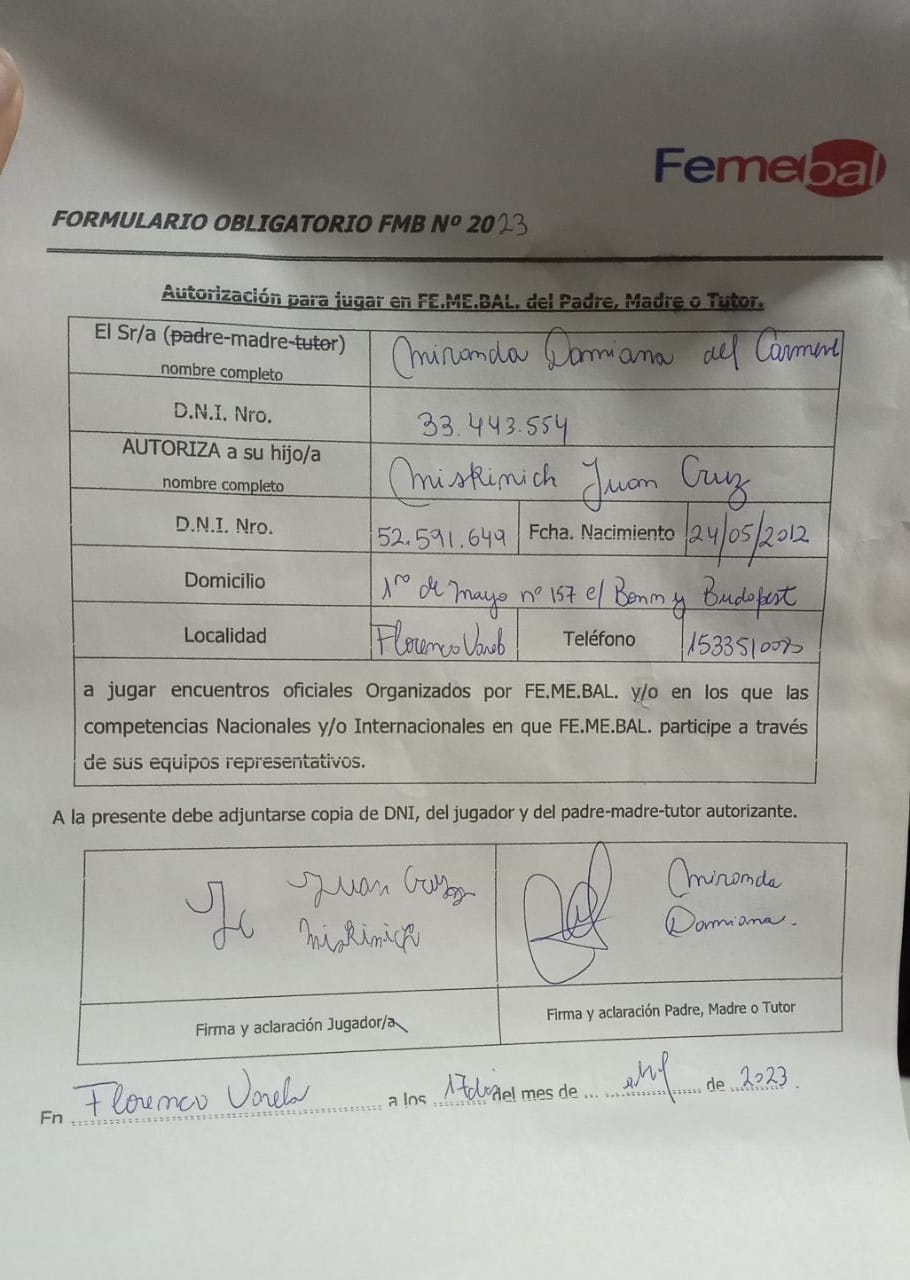 Femebal
FORMULARIO OBLIGATORIO FMB Nº 2023
Autorización para jugar en FE.ME.BAL. del Padre, Madre o Tutor.
El Sr/a (padre-madre-tutor)
nombre completo
Miranda Damiana del Carmen
D.N.I. Nro.
33.443.554
AUTORIZA a su hijo/a
nombre completo
Miskinich Juan Cruz
D.N.I. Nro.
52.591.649
Fcha. Nacimiento
24/05/2012
Domicilio
1ro de Mayo nº 157 e/ Bonn y Budapest
Localidad
Florencio Varela
Teléfono
a jugar encuentros oficiales Organizados por FE.ME.BAL. y/o en los que las
competencias Nacionales y/o Internacionales en que FE.ME.BAL. participe a través
de sus equipos representativos.
A la presente debe adjuntarse copia de DNI, del jugador y del padre-madre-tutor autorizante.
Juan Cruz
Miskinich
Miranda
Damiana.
Firma y aclaración Jugador/a
Firma y aclaración Padre, Madre o Tutor
En Florencio Varela a los 17 días del mes de abril de 2023.